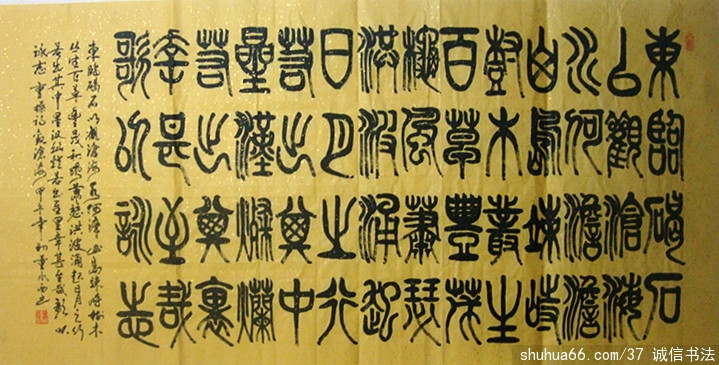 東臨碣石
以觀滄海
水何澹澹
山島竦峙
樹木叢生
百草豐茂
秋風蕭瑟
洪波涌起
日月之行
若出其中
星漢燦爛
若出其裏
幸甚至哉
歌以詠志
東臨碣石以觀滄海水何澹澹山島竦峙樹木
叢生百草豐茂秋風蕭瑟洪波涌起日月之行
若出其中星漢燦爛若出其裏幸甚至哉歌以
詠志 曹操詩觀滄海 甲午年初
shuhua66.com/37 诚信书法